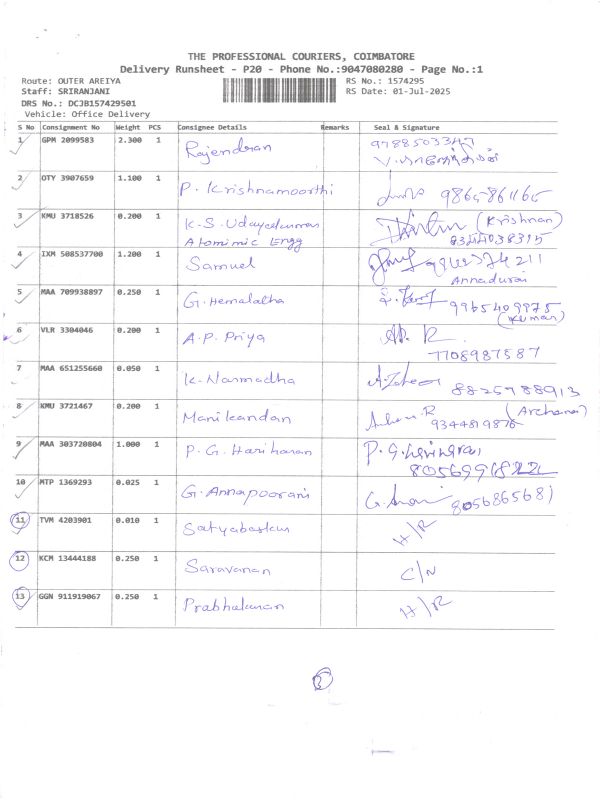 THE PROFESSIONAL COURIERS, COIMBATORE
Delivery Runsheet - P20 - Phone No.:9047080280 - Page No.:1
Route: OUTER AREIYA RS No.: 1574295
Staff: SRIRANJANI RS Date: 01-Jul-2025
DRS No.: DCJB157429501
Vehicle: Office Delivery
S No Consignment No Weight PCS Consignee Details Remarks Seal & Signature
1 GPM 2099583 2.300 1 Rajendran 9788503347
2 OTY 3907659 1.100 1 P. Krishnamoorthi
3 KMU 3718526 0.200 1 K.S. Udayakumar (Krishnan)
Engg
4 IXM 508537700 1.200 1 Samuel
Annadurai
5 MAA 709938897 0.250 1 G. Hemalatha 9965409975
(Kumar)
6 VLR 3304046 0.200 1 A.P. Priya
7708987587
7 MAA 651255660 0.050 1 K. Narmadha 8825988913
8 KMU 3721467 0.200 1 Manikandan (Archana)
9344819876
9 MAA 303720804 1.000 1 P.G. Hariharan
10 MTP 1369293 0.025 1 G. Annapoorani 8056865681
11 TVM 4203901 0.010 1 H/R
12 KCM 13444188 0.250 1 Saravanan C/N
13 GGN 911919067 0.250 1 Prabhakaran H/R